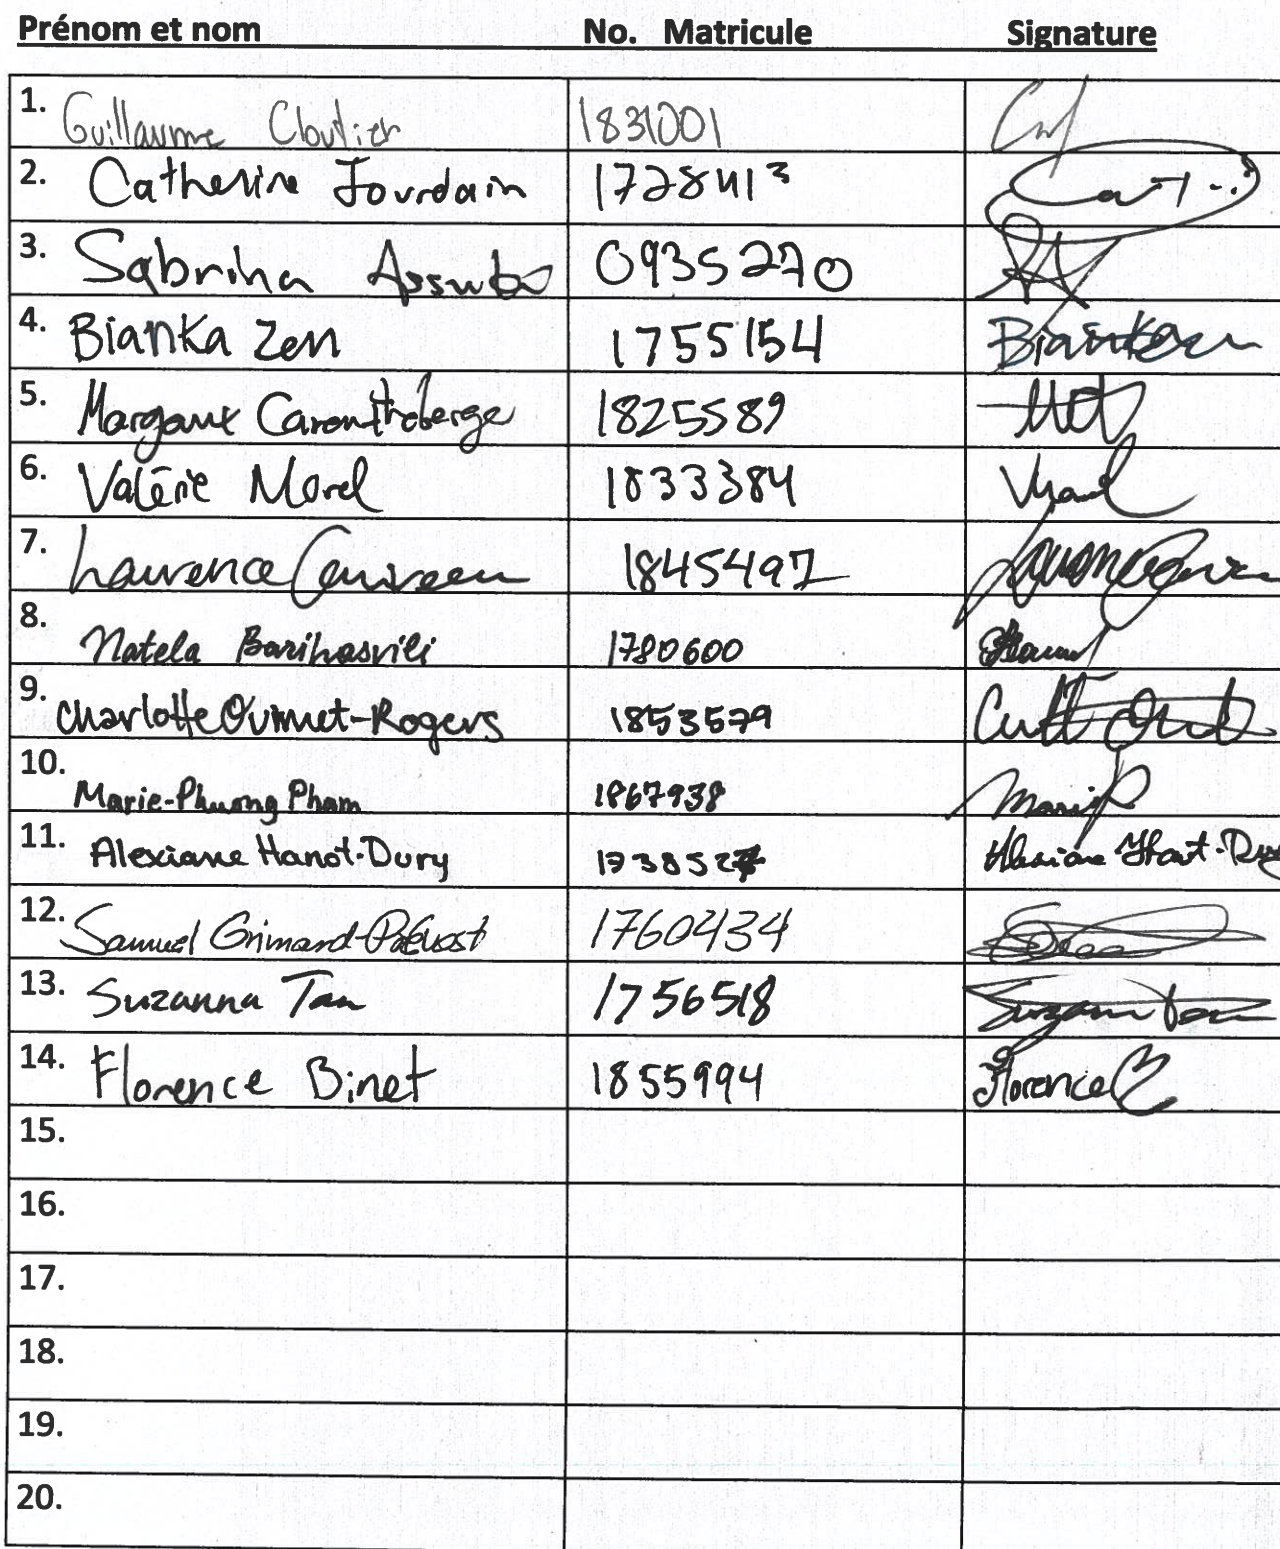 Prénom et nom No. Matricule Signature
1. Guillaume Cloutier 1831001
2. Catherine Jourdain 1728413
3. Sabrina 0935270
4. Bianka Zen 1755154 Bianka Zen
5. Margaux Caron-Théberge 1825589
6. Valérie Morel 1833384
7. Laurence 1845497
8. Natela Barihasvili 1780600
9. Charlotte Ouimet-Rogers 1853579
10. Marie-Phuong Pham 1867938
11. Alexiane Hanot-Dury 173852 Alexiane Hanot-Dury
12. Samuel Grimard-Prévost 1760434
13. Suzanna Tan 1756518 Suzanna Tan
14. Florence Binet 1855994 Florence B
15.
16.
17.
18.
19.
20.